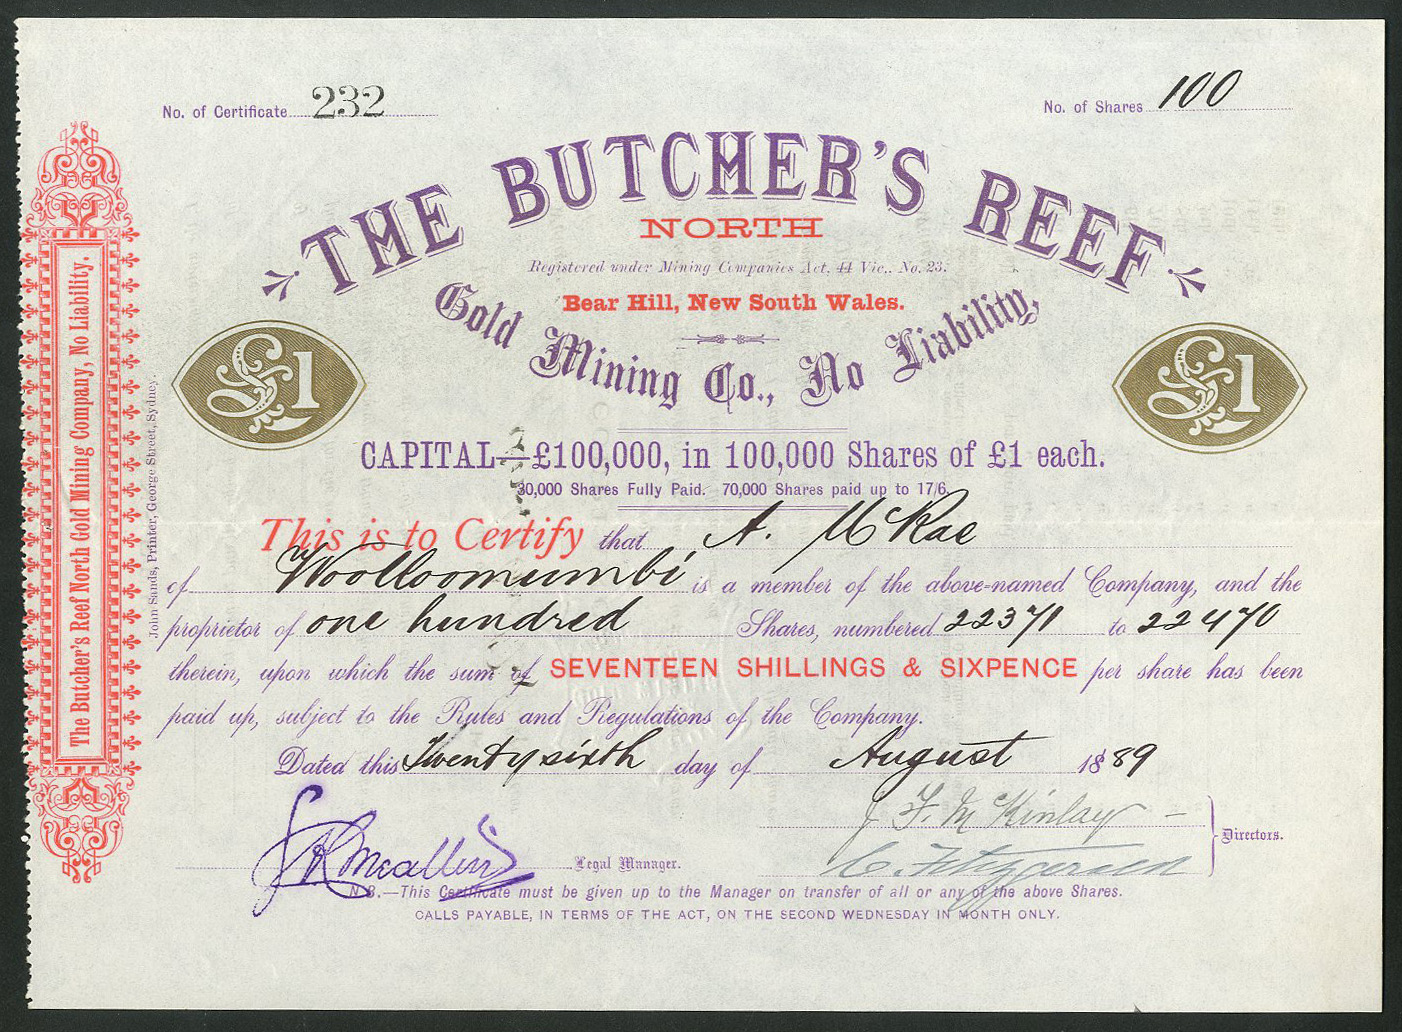 No. of Certificate 232
No. of Shares 100
THE BUTCHER'S REEF
NORTH
Registered under Mining Companies Act, 44 Vic., No. 23.
Bear Hill, New South Wales.
Gold Mining Co., No Liability,
£1
£1
CAPITAL—£100,000, in 100,000 Shares of £1 each.
30,000 Shares Fully Paid. 70,000 Shares paid up to 17/6.
This is to Certify that A. McRae
of Woolloomumbi is a member of the above-named Company, and the
proprietor of one hundred Shares, numbered 22371 to 22470
therein, upon which the sum of SEVENTEEN SHILLINGS & SIXPENCE per share has been
paid up, subject to the Rules and Regulations of the Company.
Dated this Twenty sixth day of August 1889
J. F. McKinlay
Directors.
Legal Manager.
C. Fitzgerald
N.B.—This Certificate must be given up to the Manager on transfer of all or any of the above Shares.
CALLS PAYABLE, IN TERMS OF THE ACT, ON THE SECOND WEDNESDAY IN MONTH ONLY.
The Butcher's Reef North Gold Mining Company, No Liability.
John Sands, Printer, George Street, Sydney.